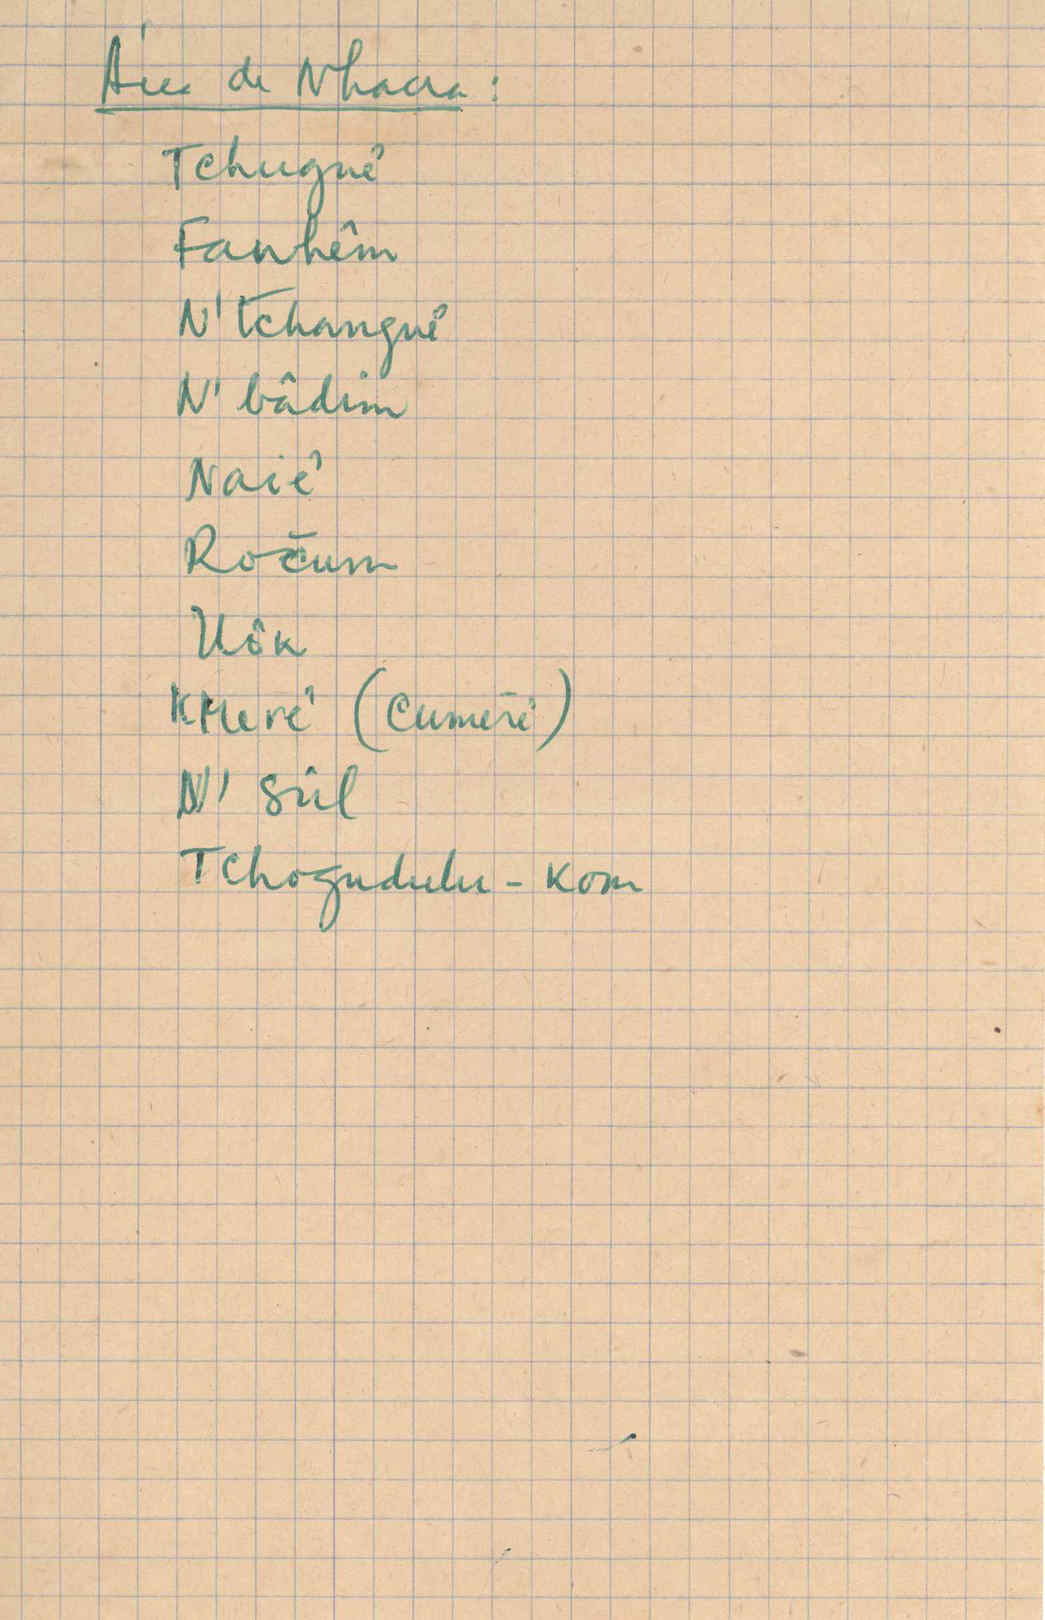 Área de Nhacra:
Tchugué
Fanhêm
N'tchangué
N'bâdim
Naié
Ročum
Uôk
Kmeré (Cumeré)
N'sûl
Tchogudulu-Kom